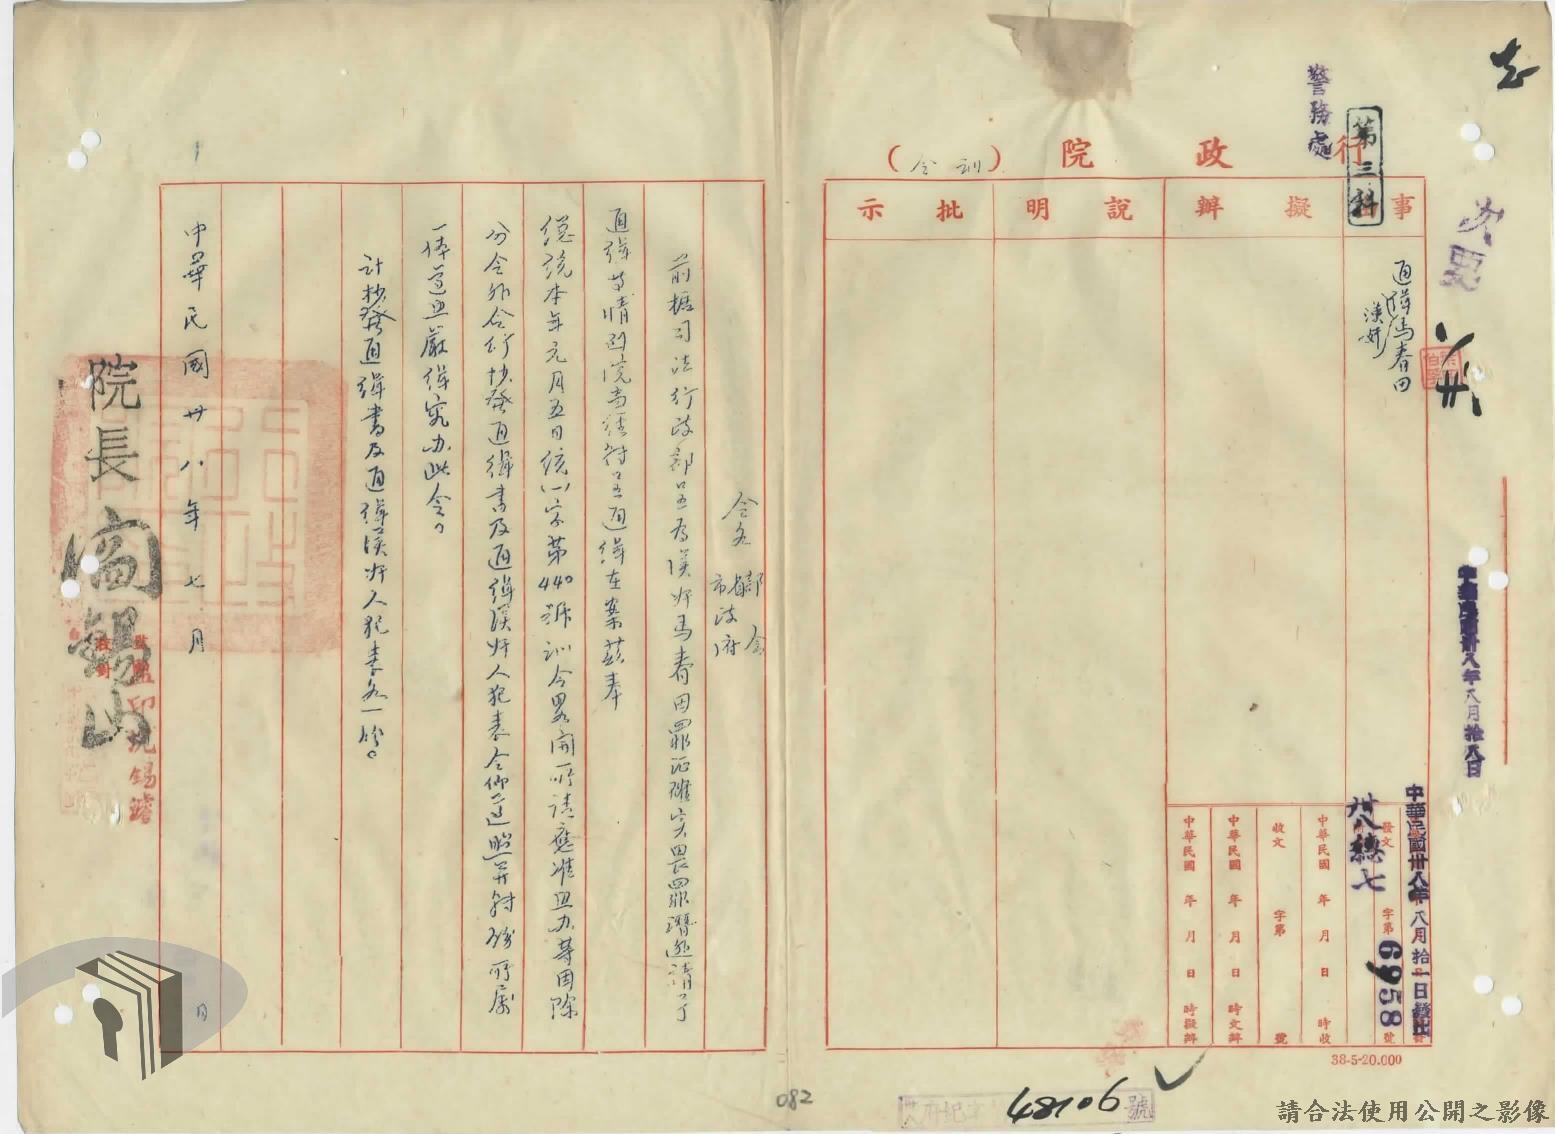 警務處
第三科
行政院（訓令）
事由
擬辦
說明
批示
通緝漢奸馬春田
中華民國卅八年八月拾八日
中華民國卅八年八月拾一日發出
發文
卅八總七
字第6958號
中華民國 年 月 日 時收
收文 字第 號
中華民國 年 月 日 時交辦
中華民國 年 月 日 時擬辦
38-5-20.000
令各部會省市政府
前據司法行政部呈為漢奸馬春田罪証確实畏罪潛逃請予
通緝等情到院當經轉呈通緝在案茲奉
總統本年元月五日統(一)字第440號訓令畧開所請應准照办等因除
分令外合行抄發通緝書及通緝漢奸人犯表令仰遵照并轉飭所屬
一体遵照嚴緝究办此令。
計抄發通緝書及通緝漢奸人犯表各一份。
中華民國卅八年七月 日
院長閻錫山
監印沈錫
校對
082
48106
號
請合法使用公開之影像